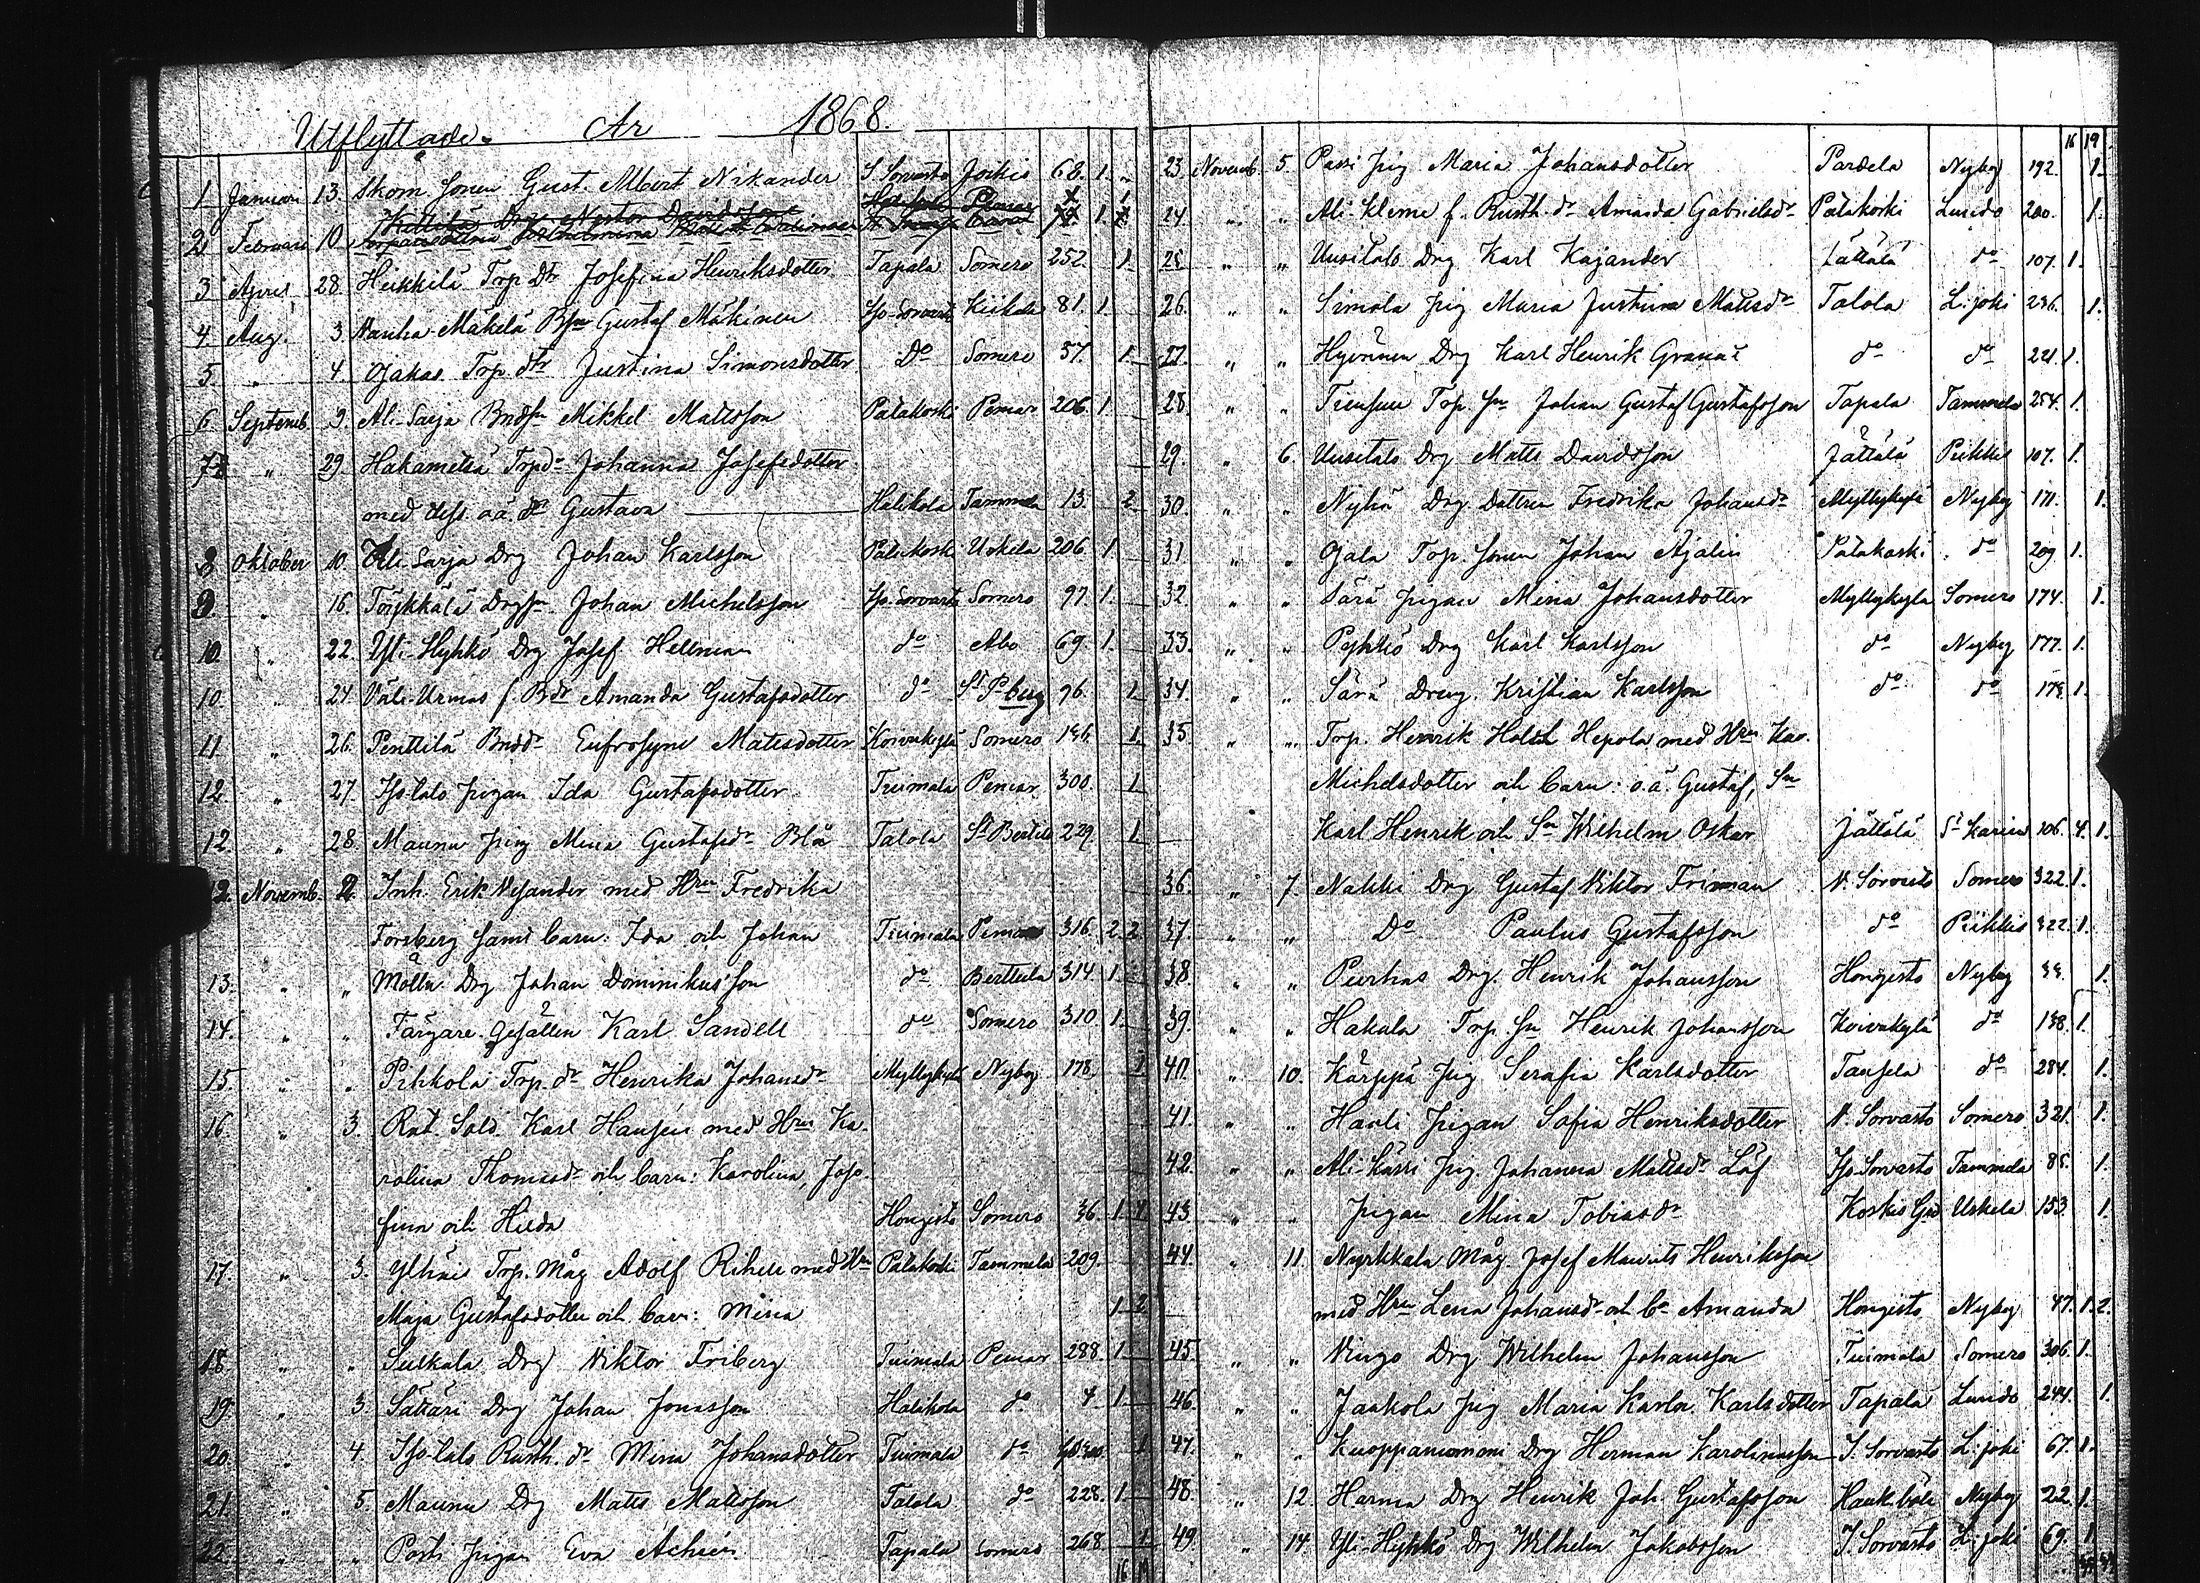 Utflyttade. År 1868.
1 Januari 13. Skom. sonen Gust. Albert Nikander S. Sorvasto Jokis 68. 1.
2 Februari 10.
3 April 28 Heikkilä Torp. Dtr Josefina Henriksdotter Tapala Somero 252. 1.
4 Aug. 3 Vanha-Mäkelä Bsn Gustaf Mäkinen Iso-Sorvasto Kiikala 81. 1.
5. " 4. Ojakas Torp. dtr Justina Simonsdotter Do Somero 57. 1.
6. Septemb. 3. Ali-Sarja Bndsn Mikkel Mattsson Patakoski Pemar 206. 1.
7 " 29. Hakametsä Torpdr Johanna Josefsdotter
med dess oä. dr Gustava Halikola Tammela 13. 2
8 Oktober 10. Ali-Sarja Drg Johan Karlsson Patakoski Uskela 206. 1.
9. " 16. Töykkälä Drgsn Johan Michelsson Iso-Sorvasto Somero 97. 1.
10 " 22. Yli-Hyhkö Drg Josef Hellman do Abo 69. 1.
10. " 24. Väli-Urmas f. Bdr Amanda Gustafsdotter do St Pberg 96. 1
11 " 26. Penttilä Bndдr Eufrosyne Matsdotter Koivukylä Somero 146. 1.
12. " 27. Iso-talo pigan Ida Gustafsdotter Tuimala Pemar 300. 1
12. " 28. Maunu pig Mina Gustafsdr Blå Talola St Bertils 229. 1
12. Novemb. 2. Inh. Erik Nysander med Hru Fredrika
Forsberg samt barn: Ida och Johan Tuimala Pemar 316. 2 2
13. " " Mälln Drg Johan Dominikusson do Berttula 314. 1.
14. " " Färgare-Gesällen Karl Sandell do Somero 310. 1.
15 " " Pihkola Torp. dr Henrika Johansdr Myllykylä Nyby 178. 1
16. " 3. Rot. Sold. Karl Hansén med Hru Ka-
rolina Thomasdr och barn: Karolina, Jose-
fina och Hilda Hongisto Somero 36. 1 4
17. " 3. Ylhäi Torp. Måg Adolf Rihell med Hru Patakoski Tammela 209.
Maja Gustafsdotter och barn: Mina 1 2
18. " " Seikala Drg Viktor Friberg Tuimala Pemar 288. 1.
19. " 3. Säteri Drg Johan Jonasson Halikola do 4 1.
20 " 4. Iso-talo Rusth. dr Mina Johansdotter Tuimala do 1
21. " 5. Maunu Drg Matts Mattsson Talola do 228. 1.
22. " " Posti pigan Eva Achrén Tapala Somero 268. 1
16 19
16 19
23. Novemb. 5. Passi pig Maria Johansdotter Pardela Nyby 192. 1.
24. " " Ali-Kleme f. Rusth. dr Amanda Gabrielsdr Patakoski Lundo 200. 1.
25. " " Uusitalo Drg Karl Kajander Jättälä do 107. 1.
26. " " Simola pig Maria Justina Mattsdr Talola L. joki 236. 1.
27. " " Hyvönen Drg Karl Henrik Granat do do 221. 1.
28. " " Tiensuu Torp. sn Johan Gustaf Gustafsson Tapala Tammela 254. 1.
29. " 6. Uusitalo Drg Matts Davidsson Jättälä Piikkis 107. 1.
30. " " Nyhä Drg. Dottren Fredrika Johansdr Myllykylä Nyby 171. 1.
31 " " Ojala Torp. sonen Johan Ajalin Patakoski do 209 1.
32. " " Särä pigan Mina Johansdotter Myllykylä Somero 174. 1.
33. " " Pyhkö Drg Karl Karlsson do Nyby 177. 1.
34. " " Särä Dreng. Kristian Karlsson do do 174. 1.
35. " " Torp. Henrik Holst Hepola med Hru Kar.
Michelsdotter och barn: o.ä. Gustaf, Sn
Karl Henrik och Sn Wilhelm Oskar Jättälä St Karins 106. 4. 1.
36. " 7. Nahhi Drg Gustaf Viktor Friman N. Sorvasto Somero 322. 1.
37. " " Do Paulus Gustafsson do Piikkis 322. 1.
38. " " Peerhas Drg. Henrik Johansson Hongisto Nyby 1.
39. " " Hakala Torp. sn Henrik Johansson Koivukylä do 138. 1.
40. " 10. Kärppä pig Serafia Karlsdotter Tausela do 284. 1.
41. " " Hanli pigan Sofia Henriksdotter N. Sorvasto Somero 321. 1.
42. " " Ali-Kässi pig. Johanna Mattsdr Löf Iso-Sorvasto Tammela 85. 1.
43. " " Pigan Mina Tobiasdr Koskis Grd Uskela 153. 1.
44. " 11. Nyrkkala Måg Josef Maurits Henriksson
med Hru Lena Johansdr och bn Amanda Hongisto Nyby 47. 1. 2.
45. " " Vingo Drg Wilhelm Johansson Tuimala Somero 306. 1.
46. " " Jaakola pig Maria Karlsdotter Tapala Lundo 244. 1.
47. " " Kuoppaniemi Drg Herman Karolinasson I. Sorvasto L. joki 67. 1.
48. " 12. Harma Drg Henrik Joh. Gustafsson Haukböle Nyby 22. 1.
49. " 14. Yli-Hyhkö Drg Wilhelm Jakobsson I. Sorvasto L. joki 69. 1